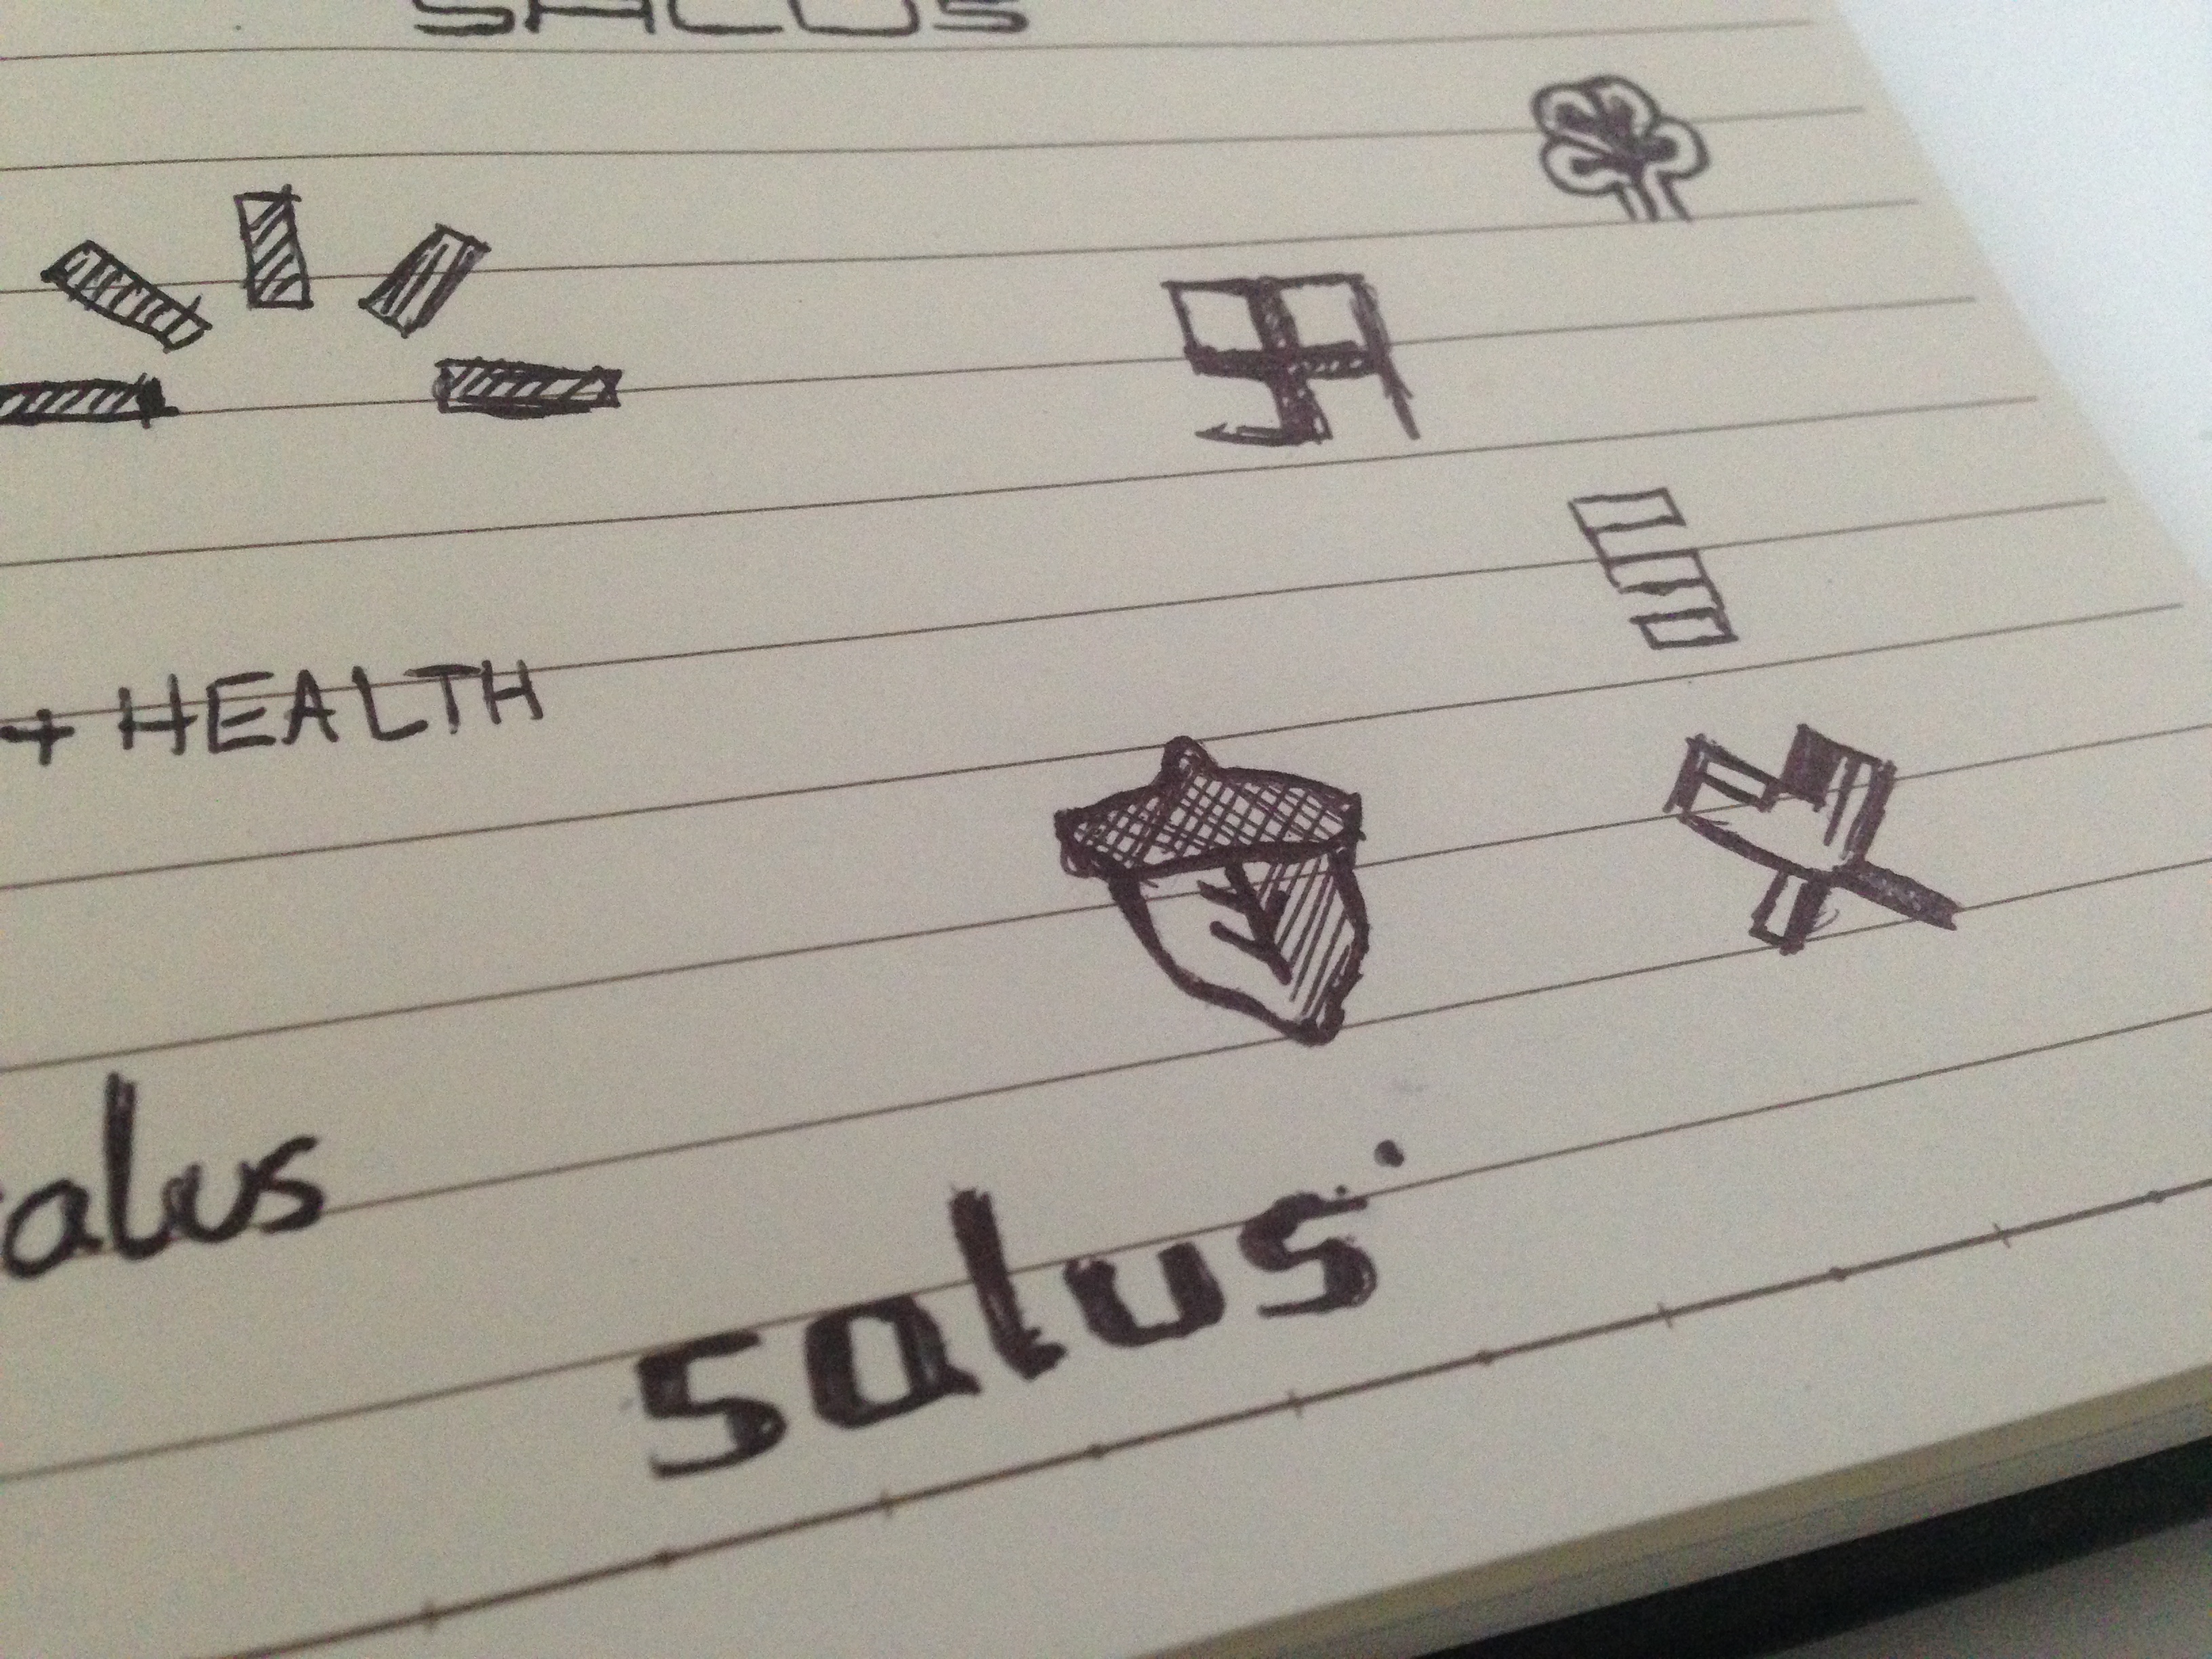 SALUS
+ HEALTH
alus
salus